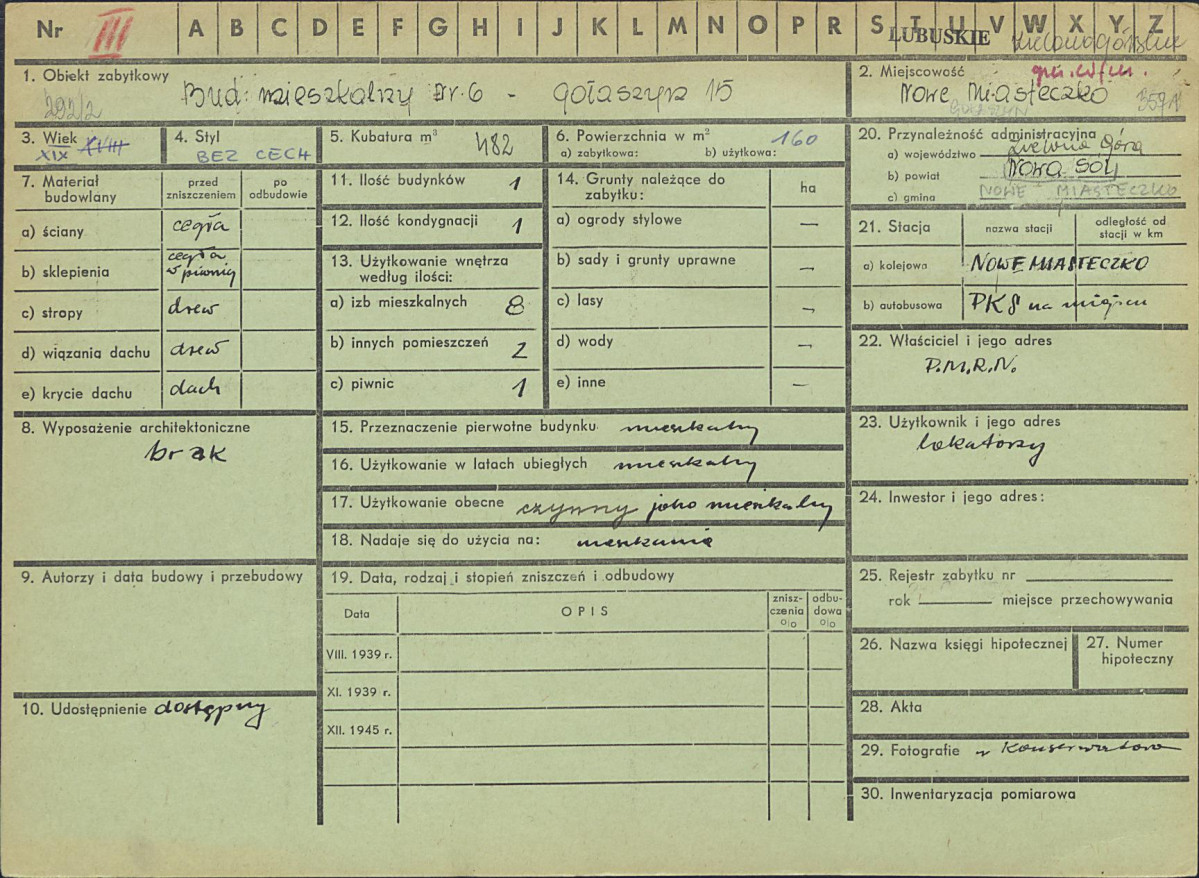 Nr III A B C D E F G H I J K L M N O P R S T U V W X Y Z
LUBUSKIE
1. Obiekt zabytkowy
292/2
Bud. mieszkalny Nr 6 - Gołaszyn 15
2. Miejscowość
Nowe Miasteczko
GOŁASZYN
3. Wiek
XIX XVIII
4. Styl
BEZ CECH
5. Kubatura m³ 482
6. Powierzchnia w m²
a) zabytkowa: b) użytkowa: 160
20. Przynależność administracyjna
a) województwo Zielona Góra
b) powiat NOWA SÓL
c) gmina NOWE MIASTECZKO
7. Materiał budowlany
przed zniszczeniem
po odbudowie
a) ściany cegła
b) sklepienia cegła w piwnicy
c) stropy drew
d) wiązania dachu drew
e) krycie dachu dach
11. Ilość budynków 1
12. Ilość kondygnacji 1
13. Użytkowanie wnętrza
według ilości:
a) izb mieszkalnych 8
b) innych pomieszczeń 2
c) piwnic 1
14. Grunty należące do
zabytku: ha
a) ogrody stylowe —
b) sady i grunty uprawne —
c) lasy —
d) wody —
e) inne —
21. Stacja
nazwa stacji
odległość od
stacji w km
a) kolejowa NOWE MIASTECZKO
b) autobusowa PKS na miejscu
22. Właściciel i jego adres
P.M.R.N.
8. Wyposażenie architektoniczne
brak
15. Przeznaczenie pierwotne budynku mieszkalny
16. Użytkowanie w latach ubiegłych mieszkalny
17. Użytkowanie obecne czynny jako mieszkalny
18. Nadaje się do użycia na: mieszkanie
23. Użytkownik i jego adres
lokatorzy
24. Inwestor i jego adres:
9. Autorzy i data budowy i przebudowy
19. Data, rodzaj i stopień zniszczeń i odbudowy
Data
OPIS
znisz-
czenia
%
odbu-
dowa
%
VIII. 1939 r.
XI. 1939 r.
XII. 1945 r.
25. Rejestr zabytku nr
rok miejsce przechowywania
26. Nazwa księgi hipotecznej
27. Numer
hipoteczny
10. Udostępnienie dostępny
28. Akta
29. Fotografie u Konserwatora
30. Inwentaryzacja pomiarowa